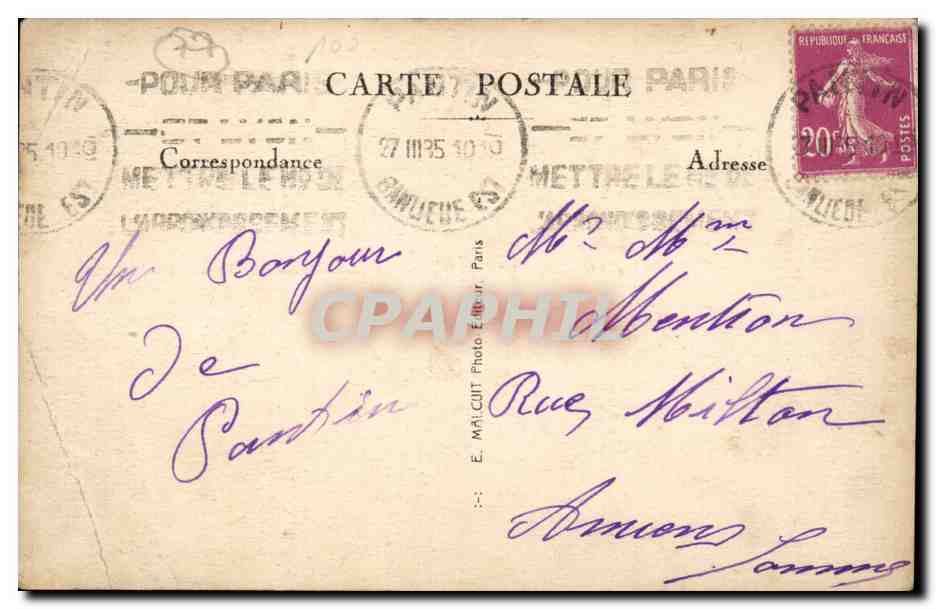 77
100
POUR PARIS
CARTE POSTALE
POUR PARIS
REPUBLIQUE FRANÇAISE
20c
POSTES
PANTIN
27 III 35 10
BANLIEUE EST
PANTIN
BANLIEUE
35 10
EST
Correspondance
Adresse
METTRE LE Nº DE
L'ARRONDISSEMENT
METTRE LE Nº DE
L'ARRONDISSEMENT
Un Bonjour
de
Pantin
E. MALCUIT Photo Editeur, Paris
CPAPHIL
Mr Mme
Mention
Rue Milton
Amiens
Somme